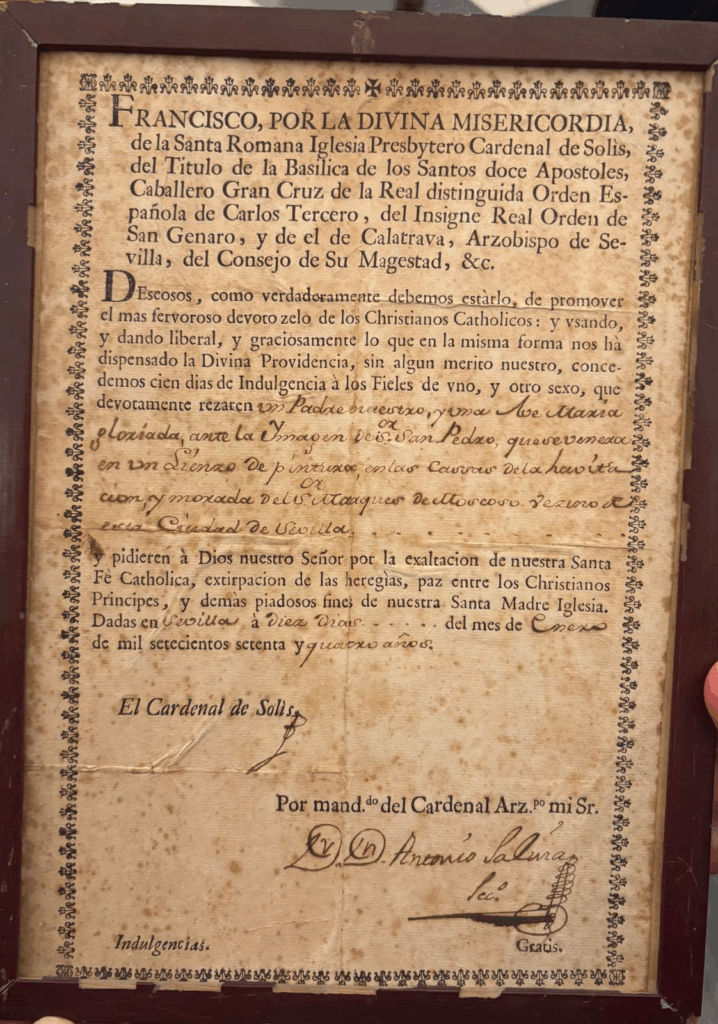 FRANCISCO, POR LA DIVINA MISERICORDIA,
de la Santa Romana Iglesia Presbytero Cardenal de Solìs,
del Titulo de la Basilica de los Santos doce Apostoles,
Caballero Gran Cruz de la Real distinguida Orden Es-
pañola de Carlos Tercero, del Insigne Real Orden de
San Genaro, y de el de Calatrava, Arzobispo de Se-
villa, del Consejo de Su Magestad, &c.
DEseosos, como verdaderamente debemos estàrlo, de promover
el mas fervoroso devoto zelo de los Christianos Catholicos: y vsando,
y dando liberal, y graciosamente lo que en la misma forma nos hà
dispensado la Divina Providencia, sin algun merito nuestro, conce-
demos cien dias de Indulgencia à los Fieles de vno, y otro sexo, que
devotamente rezaren un Padre nuestro, y una Ave Maria
gloriada, ante la Ymagen de S.or San Pedro, que se venera
en un Lienzo de pintura, en las Cassas de la havita
cion, y morada del S.or Marques de Moscoso Vezino de
esta Ciudad de Sevilla.
y pidieren à Dios nuestro Señor por la exaltacion de nuestra Santa
Fè Catholica, extirpacion de las heregìas, paz entre los Christianos
Principes, y demàs piadosos fines de nuestra Santa Madre Iglesia.
Dadas en Sevilla à diez dias . . . . . del mes de Enero
de mil setecientos setenta y quatro años.
El Cardenal de Solìs,
Por mand.do del Cardenal Arz.po mi Sr.
Antonio
Sec.o
Indulgencias.
Gratis.